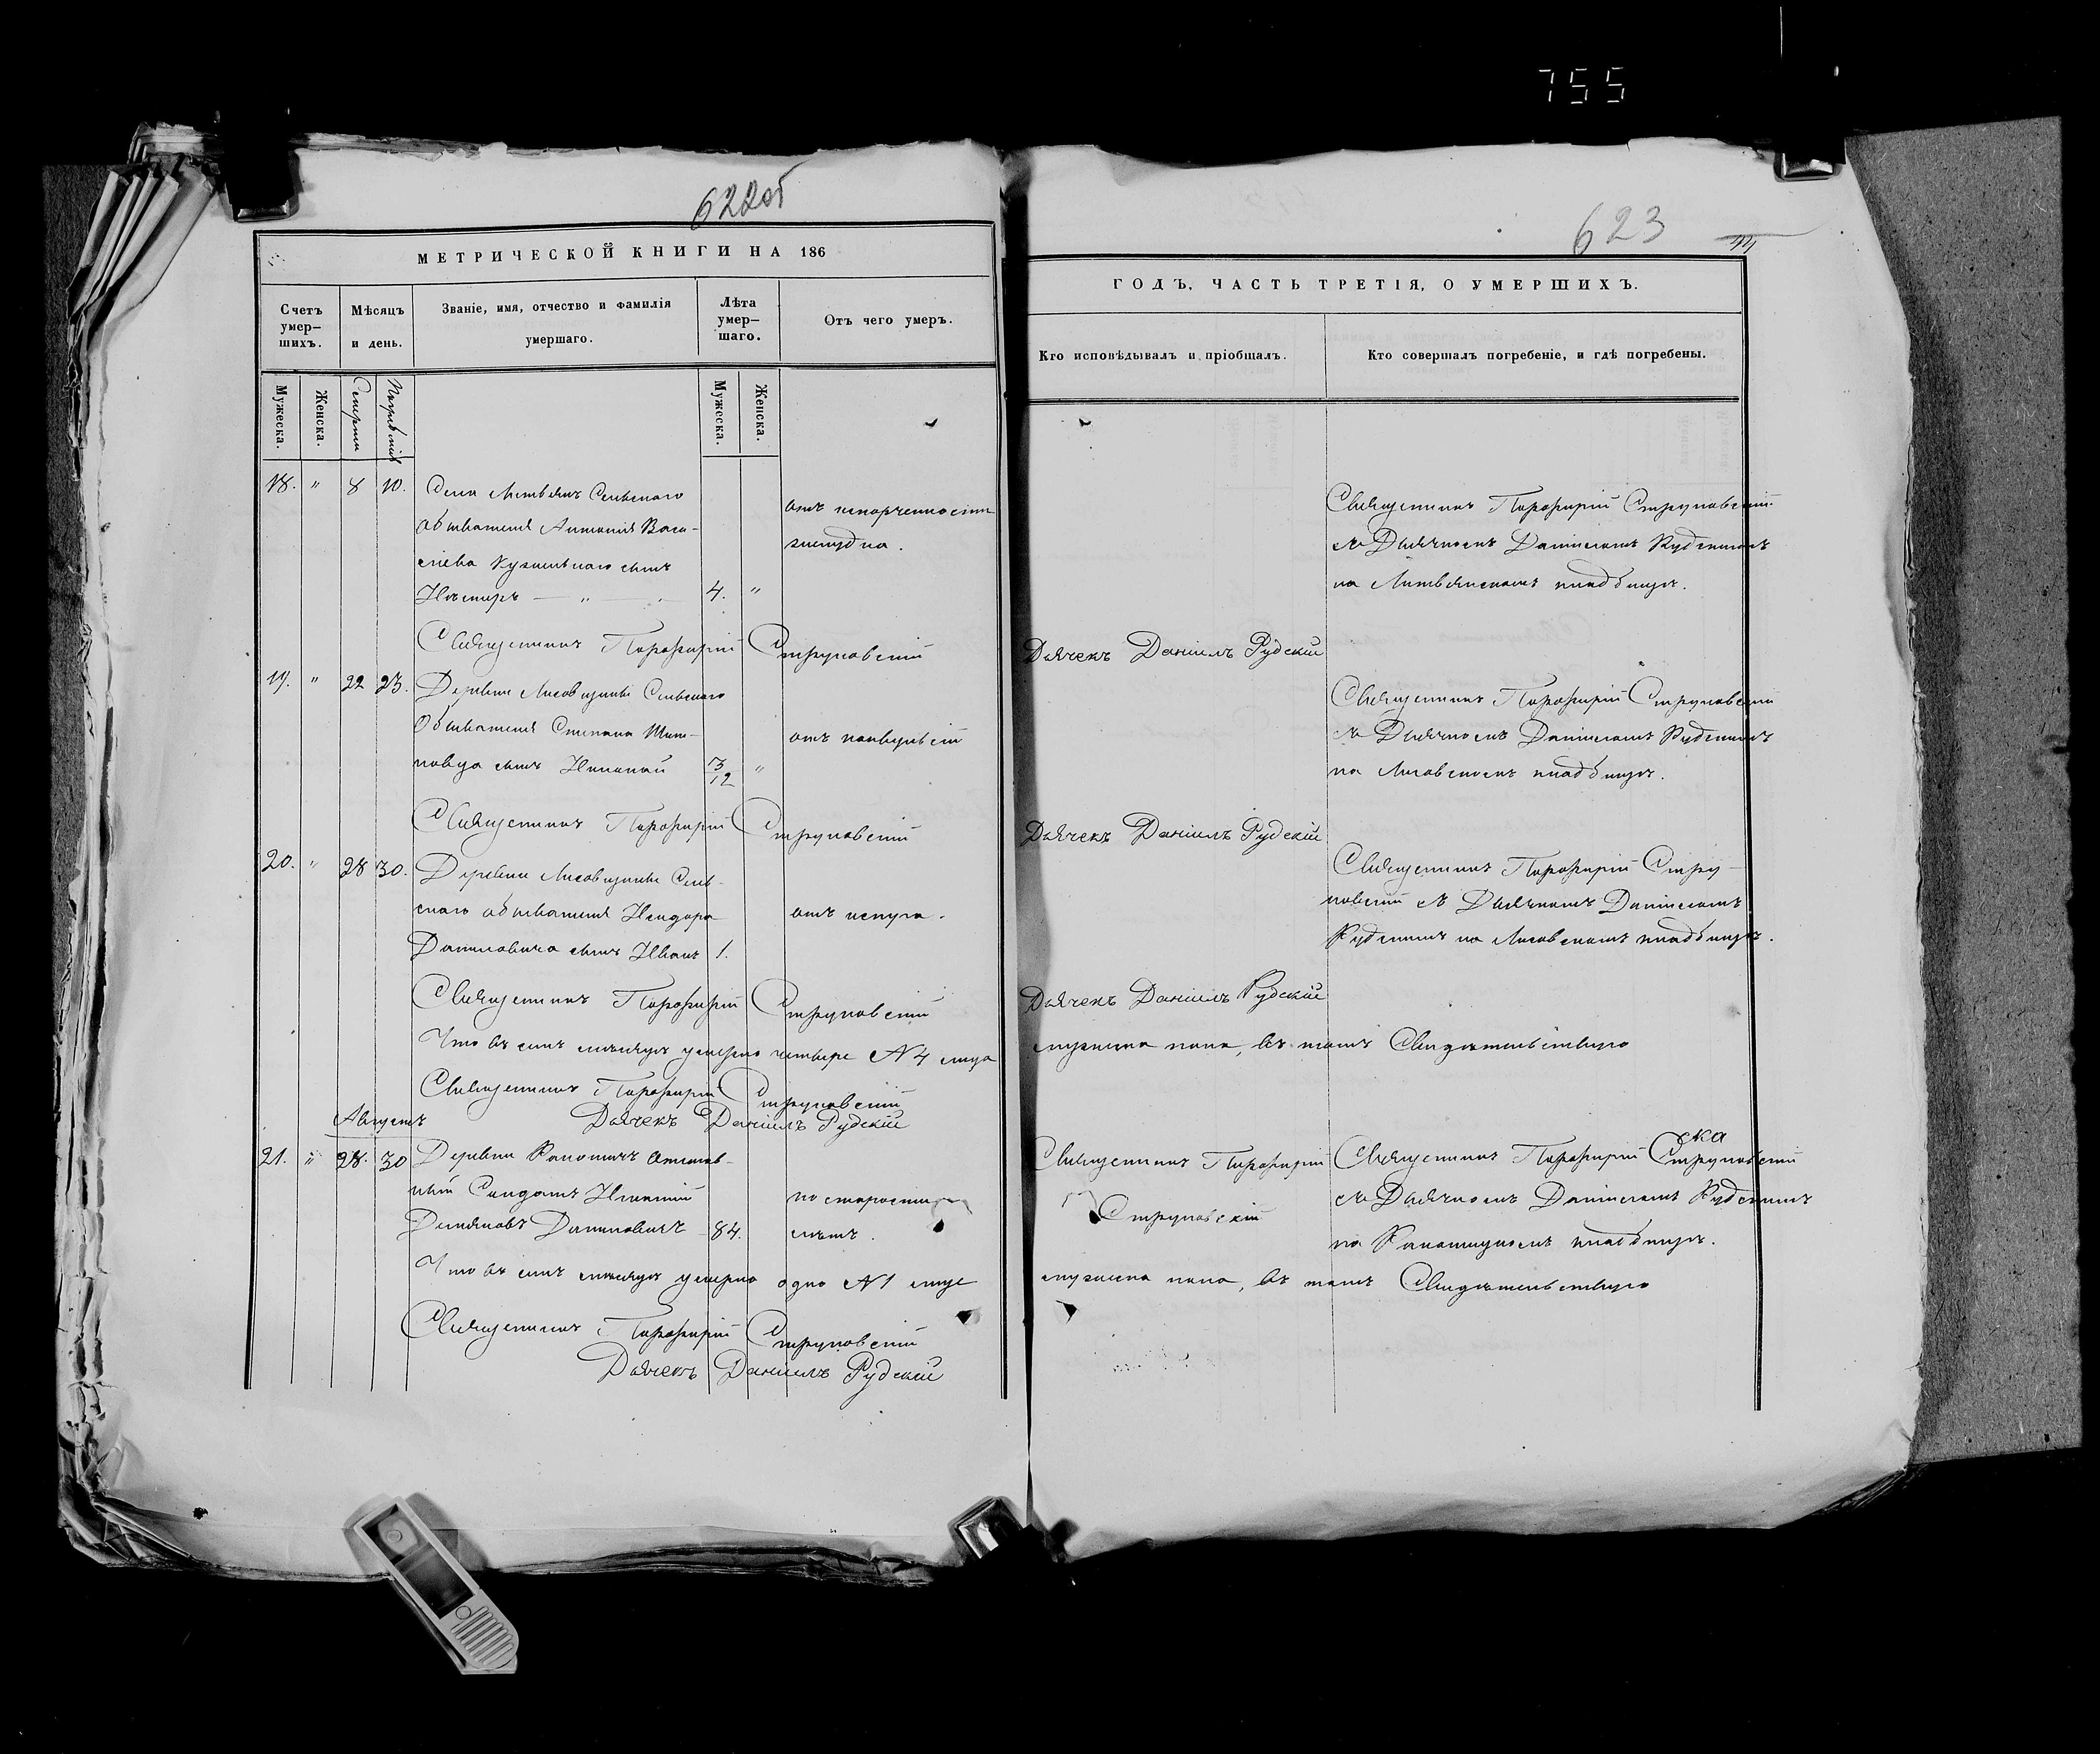 755
622об
МЕТРИЧЕСКОЙ КНИГИ НА 186
Счетъ умер-шихъ.
Мѣсяцъ и день.
Званіе, имя, отчество и фамилія умершаго.
Лѣта умер-шаго.
Отъ чего умеръ.
Мужеска.
Женска.
Смерти
Погребенія
Мужеска.
Женска.
18. " 8 10. Села Литвянъ Сельскаго
обывателя Антонія Васи- отъ испорченности
лїева Кузмѣнаго сынъ желудка.
Несторъ — " — 4. "
Священникъ Порфирій Струковскій
19. " 22 23. Деревни Лисовщины Сельскаго
Обывателя Степана отъ конвульсій
сынъ Николай 3/12 "
Священникъ Порфирій Струковскій
20. " 28 30. Деревни Лисовщины Сель-
скаго обывателя Исидора отъ испуга.
Даниловича сынъ Иванъ 1.
Священникъ Порфирій Струковскій
Что въ семъ мѣсяцѣ умерло четыре N 4 лица
Священникъ Порфирій Струковскій
Дьячекъ Даніилъ Рудскій
Августъ
21. " 28. 30 Деревни отстав-
ный Солдатъ Игнатій по старости
Демяновъ Даниловичъ 84. лѣтъ.
Что въ семъ мѣсяцѣ умерло одно N 1 лице
Священникъ Порфирій Струковскій
Дьячекъ Даніилъ Рудскій
623
ГОДЪ, ЧАСТЬ ТРЕТІЯ, О УМЕРШИХЪ.
Кто исповѣдывалъ и пріобщалъ.
Кто совершалъ погребеніе, и гдѣ погребены.
Священникъ Порфирій Струковскій
съ Дьячкомъ Даніиломъ Рудскимъ
на Литвянскомъ кладбищѣ.
Дьячекъ Даніилъ Рудскій
Священникъ Порфирій Струковскій
съ Дьячкомъ Даніиломъ Рудскимъ
на Лисовскомъ кладбищѣ.
Дьячекъ Даніилъ Рудскій
Священникъ Порфирій Стру-
ковскій съ Дьячкомъ Даніиломъ
Рудскимъ на Лисовскомъ кладбищѣ.
Дьячекъ Даніилъ Рудскій
мужеска пола, въ томъ Свидѣтельствую
Священникъ Порфирій
Струковскій
ска
Священникъ Порфирій Струковскій
съ Дьячкомъ Даніиломъ Рудскимъ
на кладбищѣ.
мужеска пола, въ томъ Свидѣтельствую